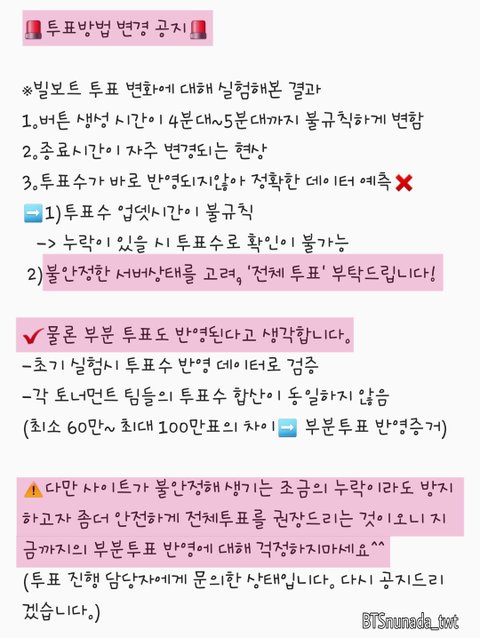 🚨투표방법 변경 공지🚨
※빌보트 투표 변화에 대해 실험해본 결과
1.버튼 생성 시간이 4분대~5분대까지 불규칙하게 변함
2.종료시간이 자주 변경되는 현상
3.투표수가 바로 반영되지않아 정확한 데이터 예측❌
➡️1)투표수 업뎃시간이 불규칙
-> 누락이 있을 시 투표수로 확인이 불가능
2)불안정한 서버상태를 고려, '전체 투표' 부탁드립니다!
✔물론 부분 투표도 반영된다고 생각합니다.
-초기 실험시 투표수 반영 데이터로 검증
-각 토너먼트 팀들의 투표수 합산이 동일하지 않음
(최소 60만~ 최대 100만표의 차이➡️ 부분투표 반영증거)
⚠️다만 사이트가 불안정해 생기는 조금의 누락이라도 방지
하고자 좀더 안전하게 전체투표를 권장드리는 것이오니 지
금까지의 부분투표 반영에 대해 걱정하지마세요^^
(투표 진행 담당자에게 문의한 상태입니다. 다시 공지드리
겠습니다.)
BTSnunada_twt